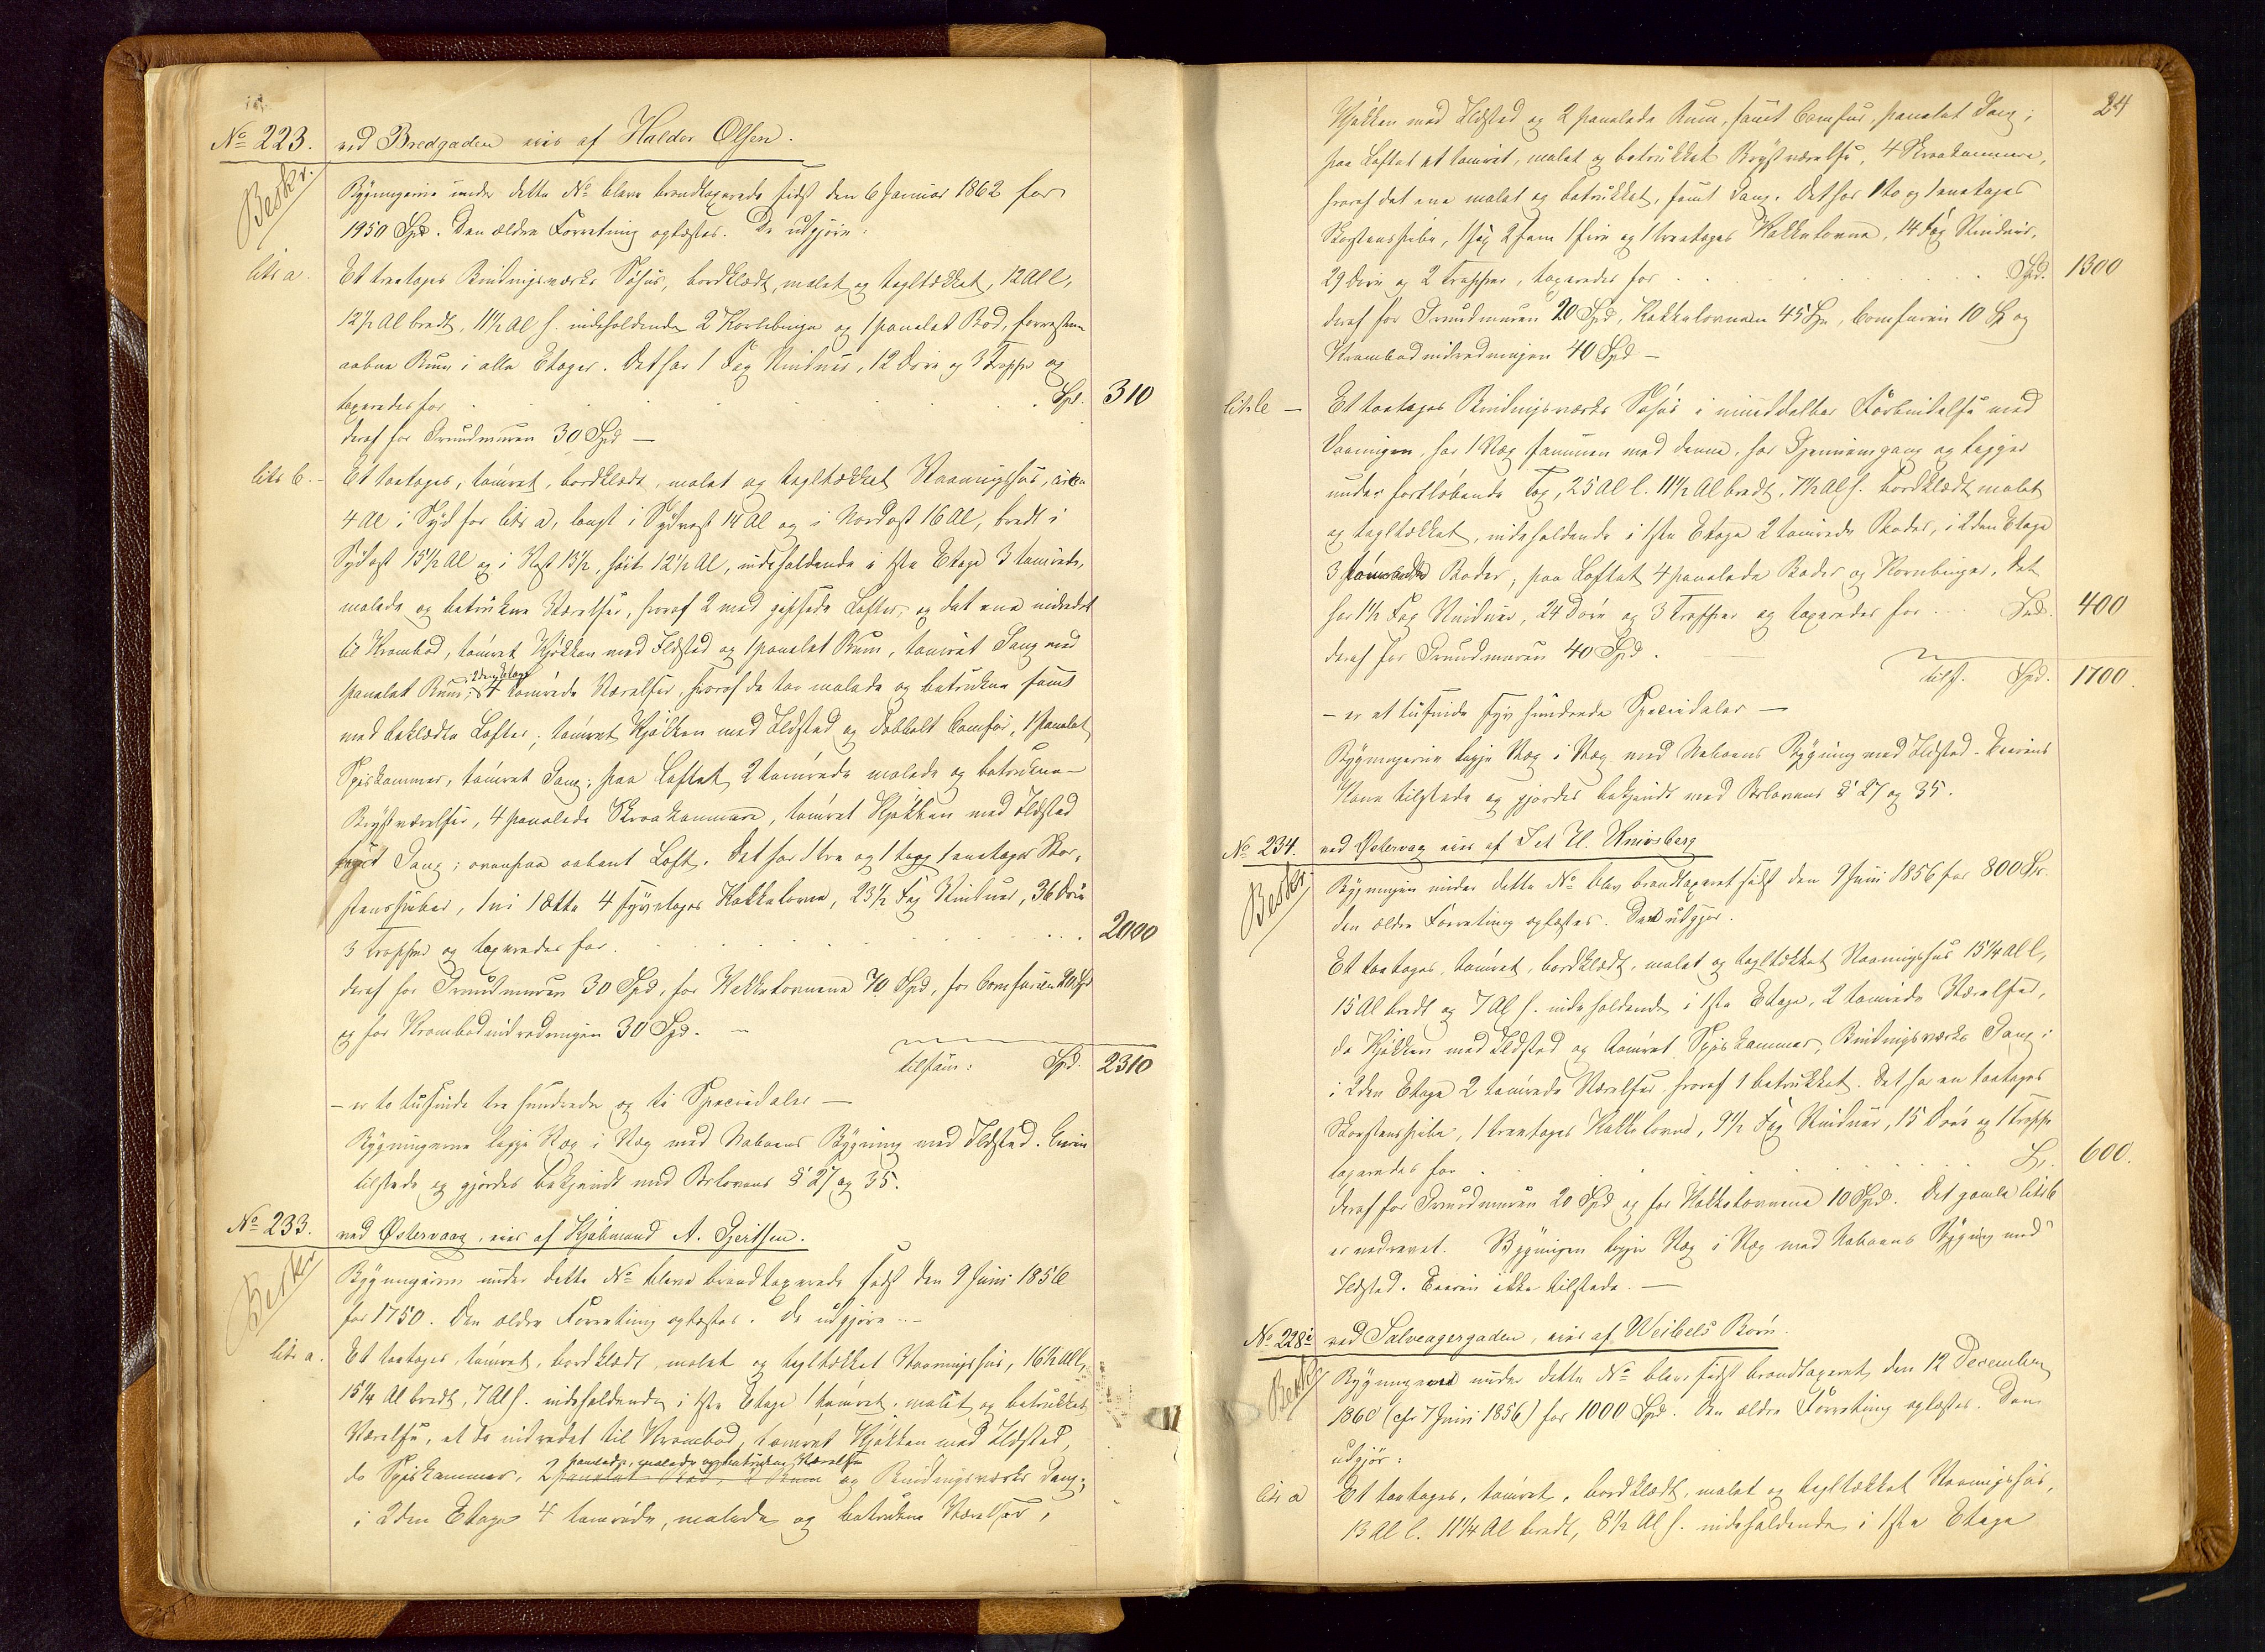 No 223. ved Bredgaden eies af Haldor Olsen.
Beskr. Bygningerne under dette No bleve brandtaxerede sidst den 6 Januar 1862 for
1950 Spd. Den ældre Forretning oplæstes. De udgjøre:
litr a. Et treetages Bindingsværks Søhus, bordklædt, malet og tegltækket, 12 Al l,
12½ Al bredt, 11½ Al h. indeholdende 2 Kornbinger og 1 panelet Bod, forresten
aabne Rum i alle Etager. Det har 1 Fag Vinduer, 12 Døre og 3 Trapper og
taxeredes for . . . Spd. 310
deraf for Grundmuren 30 Spd —
litr b. - Et toetages, tømret, bordklædt, malet og tegltækket Vaaningshus, circa
4 Al i Syd for litr a, langt i Sydvest 14 Al og i Nordost 16 Al, bredt i
Sydost 15½ Al og i Vest 13½, høit 12½ Al, indeholdende i 1ste Etage 3 tømrede,
malede og betrukne Værelser, hvoraf 2 med gipsede Lofter, og det ene indredet
til Krambod, tømret Kjøkken med Ildsted og 1 panelet Rum, tømret Gang med
panelet Rum; i 2den Etage 4 tømrede Værelser, hvoraf de to malede og betrukne samt
med beklædte Lofter; tømret Kjøkken med Ildsted og dobbelt Comfur, 1 panelet
Spiskammer, tømret Gang; paa Loftet 2 tømrede malede og betrukne
Kvistværelser, 4 panelede Skraakammere, tømret Kjøkken med Ildsted
samt Gang; ovenpaa aabent Loft. Det har 1 tre og 1 enetages Skor-
stenspiber, 1 ni 1 otte 4 syvetages Kakkelovne, 23½ Fag Vinduer, 36 Døre
3 Trapper og taxeredes for . . . 2000
deraf for Grundmuren 30 Spd, for Kakkelovnene 70 Spd, for Comfuren 20 Spd
og for Krambodindredningen 30 Spd. —
tilsam: Spd. 2310
— er to tusinde tre hundrede og ti Speciedaler —
Bygningerne ligge Væg i Væg med Naboens Bygning med Ildsted. Eieren
tilstede og gjordes bekjendt med Brlovens § 27 og 35.
No 233. ved Østervaag, eies af Kjøbmand A. Gjertsen.
Beskr. Bygningerne under dette No bleve brandtaxerede sidst den 9 Juni 1856
for 1750. Den ældre Forretning oplæstes. De udgjøre —
litr a. Et toetages, tømret, bordklædt, malet og tegltækket Vaaningshus, 16½ Al l,
15¼ Al bredt, 7 Al h. indeholdende i 1ste Etage 1 tømret, malet og betrukket
Værelse, et do indredet til Krambod, tømret Kjøkken med Ildsted,
do Spiskammer, 2 panelede, malede og betrukne Værelser og Bindingsværks Gang;
i 2den Etage 4 tømrede, malede og betrukne Værelser,
24
Kjøkken med Ildsted og 2 panelede Rum, samt Comfur, panelet Gang;
paa Loftet et tømret, malet og betrukket Kvistværelse, 4 Skraakammere,
hvoraf det ene malet og betrukket, samt Gang. Det har 1 to og 1 enetages
Skorstenspibe, 1 sex 2 fem 1 fire og 1 treetages Kakkelovne, 14 Fag Vinduer,
29 Døre og 2 Trapper, taxeredes for . . . Spd. 1300
deraf for Grundmuren 20 Spd, Kakkelovnen 45 Sp, Comfuren 10 Sp og
Krambodindredningen 40 Spd —
litr b — Et toetages Bindingsværks Søhus i umiddelbar Forbindelse med
Vaaningen, har 1 Væg sammen med denne, har Gjennemgang og ligger
under fortløbende Tag, 25 Al l. 11½ Al bredt, 7½ Al h. bordklædt malet
og tegltækket, indeholdende i 1ste Etage 2 tømrede Boder, i 2den Etage
3 tømrede Boder, paa Loftet 4 panelede Boder og Kornbinger, det
har 1½ Fag Vinduer, 24 Døre og 3 Trapper og taxeredes for . . . Spd. 400
deraf for Grundmuren 40 Spd.
tils. Spd. 1700.
— er et tusinde syv hundrede Speciedaler —
Bygningerne ligge Væg i Væg med Naboens Bygning med Ildsted. Eierens
Kone tilstede og gjordes bekjendt med Brlovens § 27 og 35.
No 234. ved Østervaag eies af Set H. Knivsberg
Beskr. Bygningen under dette No blev brandtaxeret sidst den 9 Juni 1856 for 800 Sp.
den ældre Forretning oplæstes. Den udgjør.
Et toetages, tømret, bordklædt, malet og tegltækket Vaaningshus 15¼ Al l,
15 Al bredt og 7 Al h. indeholdende i 1ste Etage, 2 tømrede Værelser,
do Kjøkken med Ildsted og tømret Spiskammer, Bindingsværks Gang;
i 2den Etage 2 tømrede Værelser hvoraf 1 betrukket. Det har en toetages
Skorstenspibe, 1 treetages Kakkelovn, 9½ Fag Vinduer, 15 Døre og 1 Trappe
taxeredes for . . . Sp. 600.
deraf for Grundmuren 20 Spd og for Kakkelovnene 10 Spd. Det gamle litr b
er nedrevet. Bygningen ligger Væg i Væg med Naboens Bygning med
Ildsted. Eieren ikke tilstede. —
No 228i ved Salveagergaden, eies af Weibels Børn.
Beskr. Bygningen under dette No blev sidst brandtaxeret den 12 December
1860 (cfr 7 Juni 1856) for 1000 Spd. Den ældre Forretning oplæstes. Den
udgjør:
litr a Et toetages, tømret, bordklædt, malet og tegltækket Vaaningshus,
13 Al l. 11¼ Al bredt, 8½ Al h. indeholdende i 1ste Etage